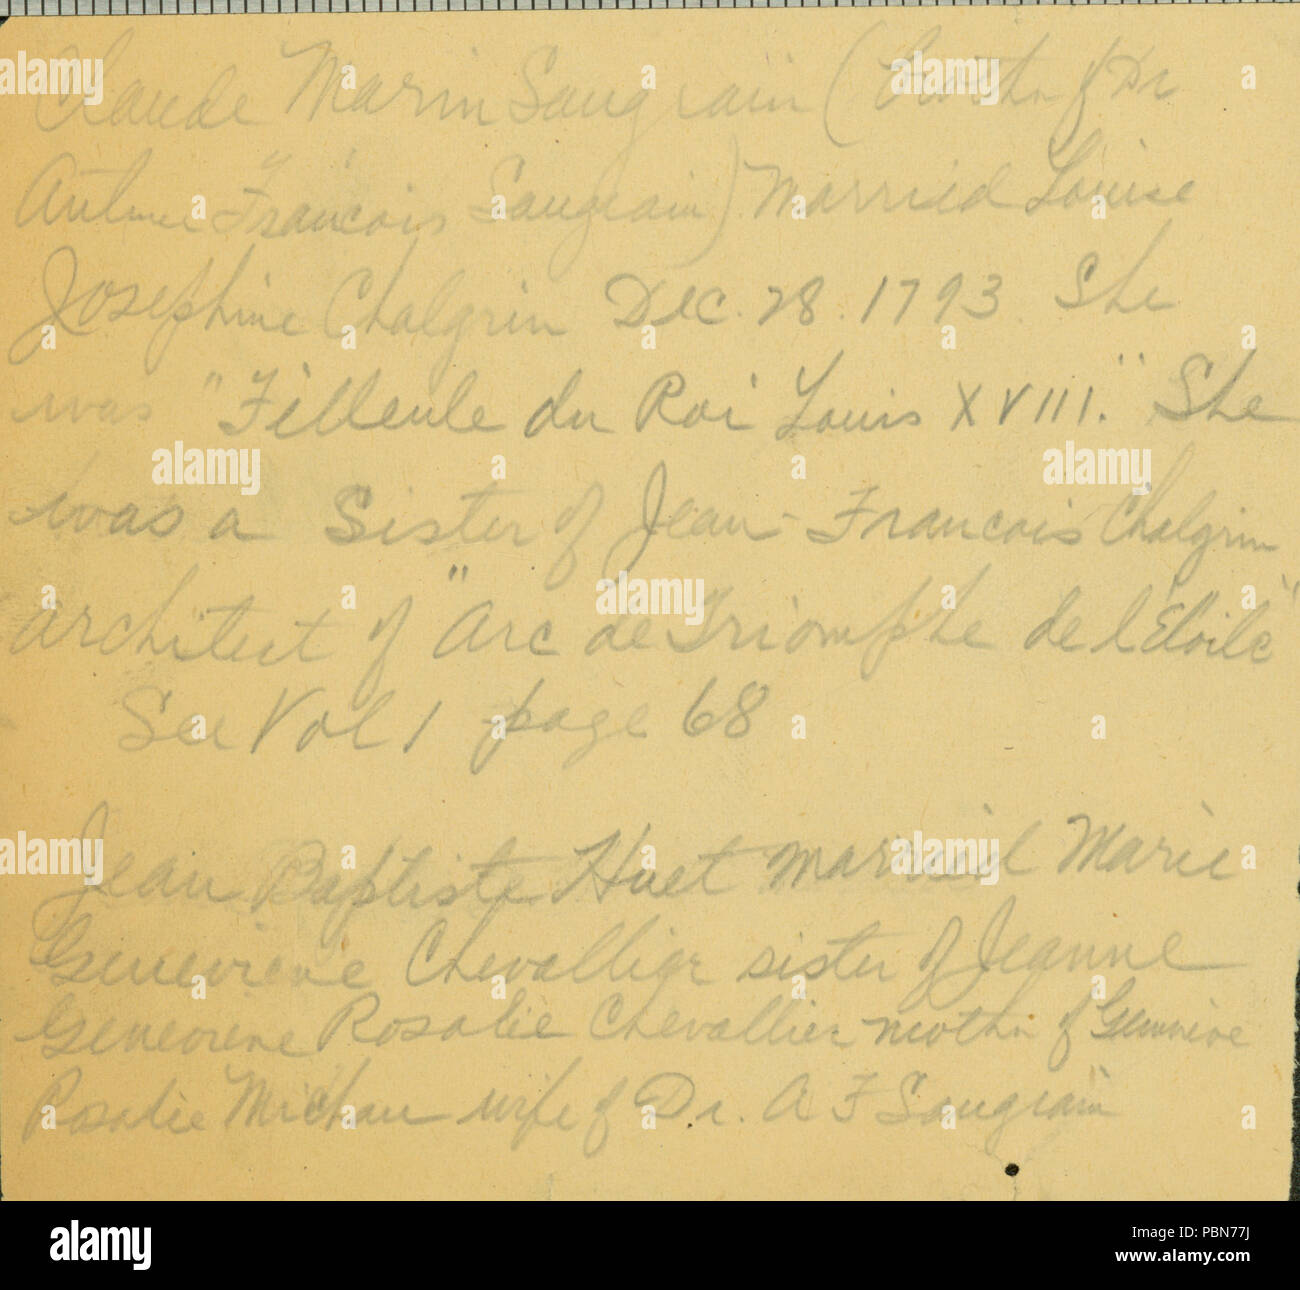 Claude Marin Saugrain (brother of Dr
Antoine Francois Saugrain) Married Louise
Josephine Chalgrin Dec. 28. 1793 She
was "Filleule du Roi Louis XVIII." She
was a Sister of Jean-Francois Chalgrin
architect of "Arc de Triomphe de l'Etoile"
See Vol 1 page 68
Jean Baptiste Huet married Marie
Genevieve Chevallier sister of Jeanne
Genevieve Rosalie Chevallier mother of Genevieve
Rosalie Michau wife of Dr. A F Saugrain
alamy
Image ID: PBN77J
www.alamy.com